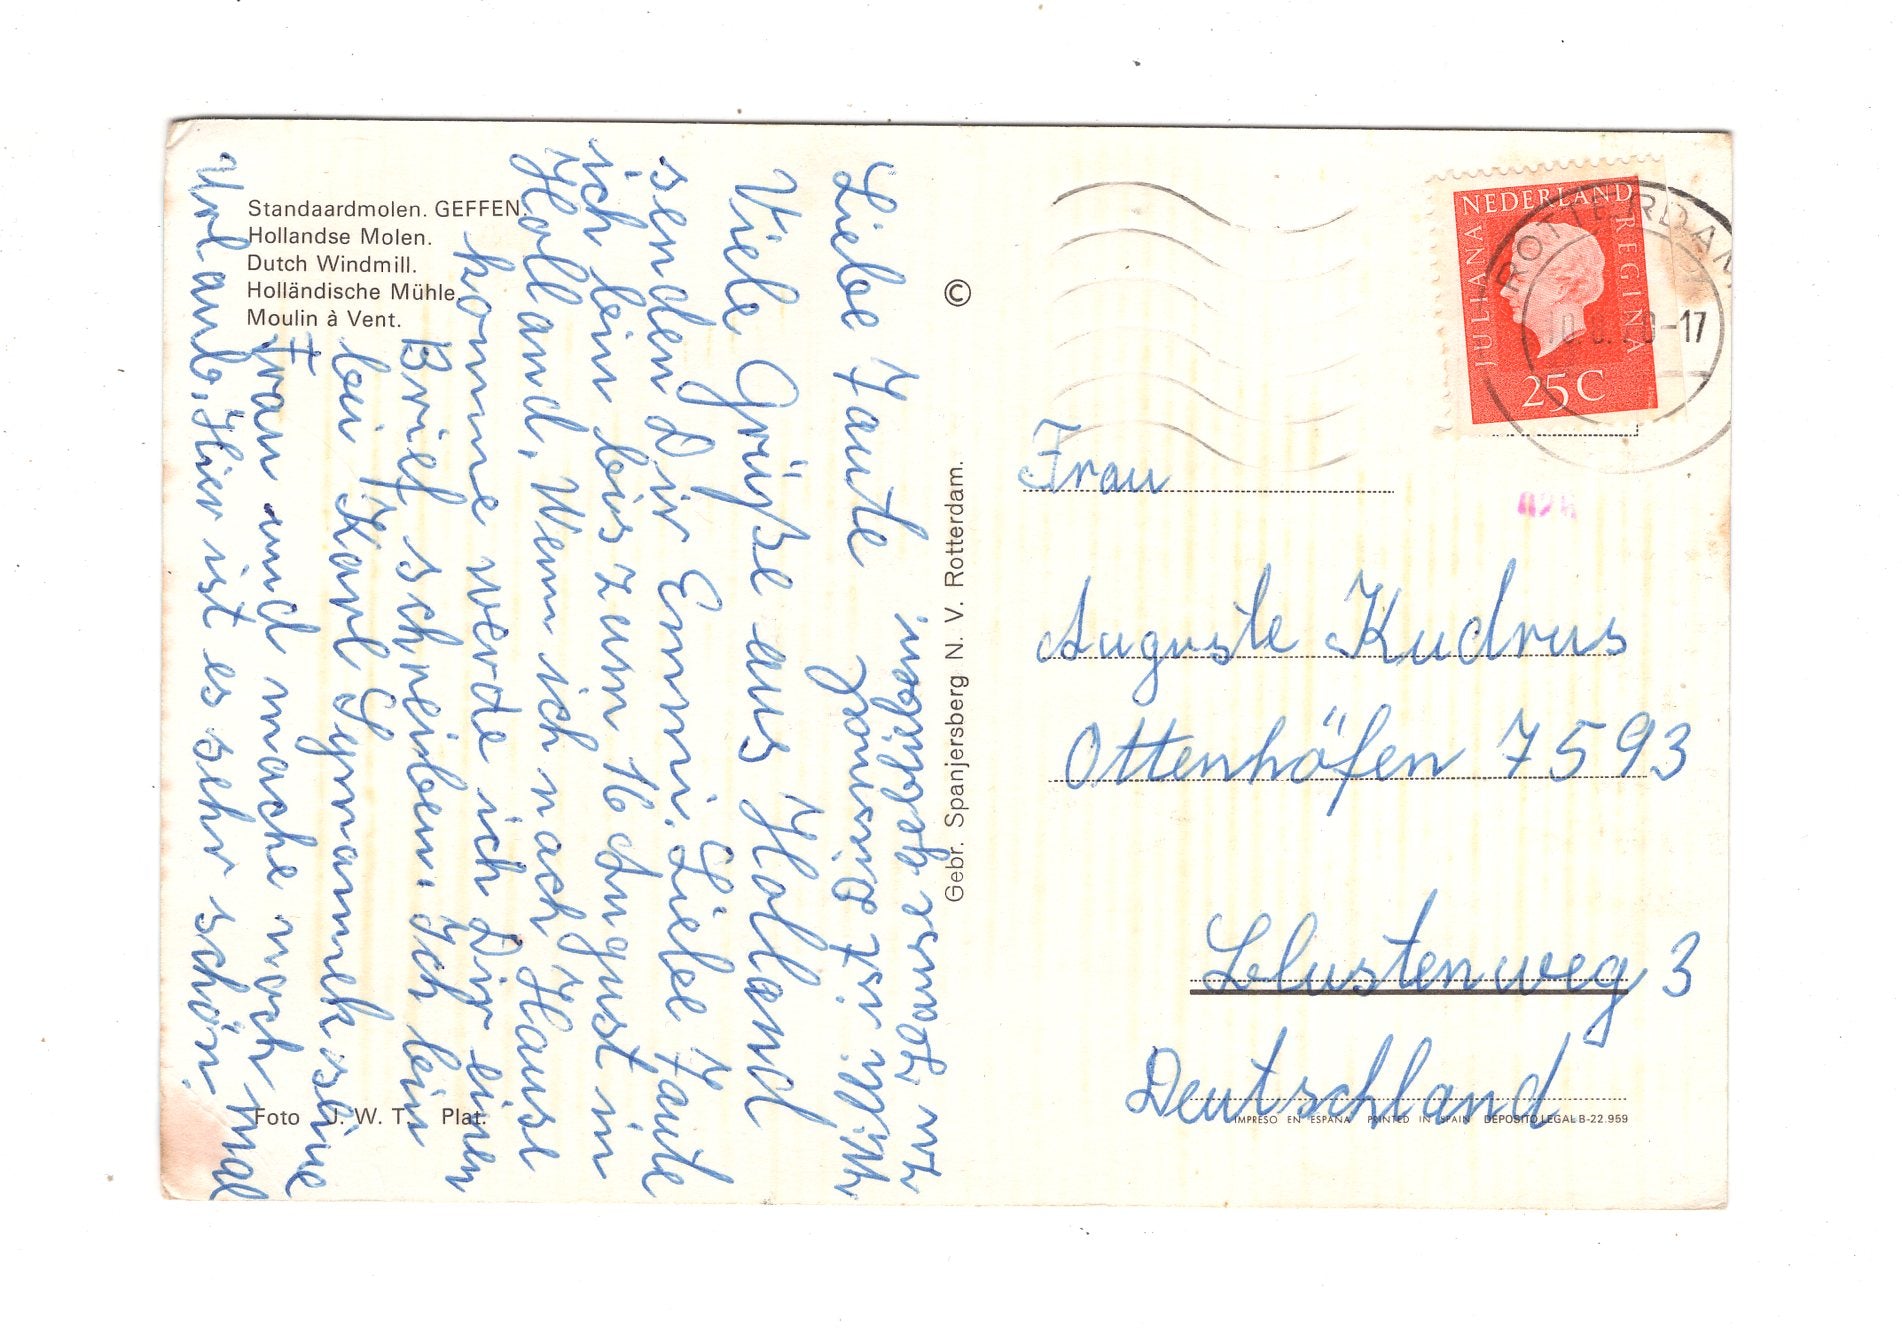 Standaardmolen. GEFFEN.
Hollandse Molen.
Dutch Windmill.
Holländische Mühle.
Moulin à Vent.
Liebe Tante
Viele Grüße aus Holland
senden Dir Emmi. Liebe Tante
ich bin bis zum 16 August in
Holland. Wenn ich nach Hause
komme werde ich Dir einen
Brief schreiben. Ich bin
bei Karl seine
Frau und mache noch mal
Urlaub. Hier ist es sehr schön.
zu Hause geblieben
Foto J. W. T. Plat.
©
Gebr. Spanjersberg N. V. Rotterdam.
NEDERLAND
JULIANA REGINA
25 C
ROTTERDAM
-17
Frau
Auguste Kudrus
Ottenhöfen 7593
Blustenweg 3
Deutschland
IMPRESO EN ESPAÑA PRINTED IN SPAIN DEPOSITO LEGAL B-22.959